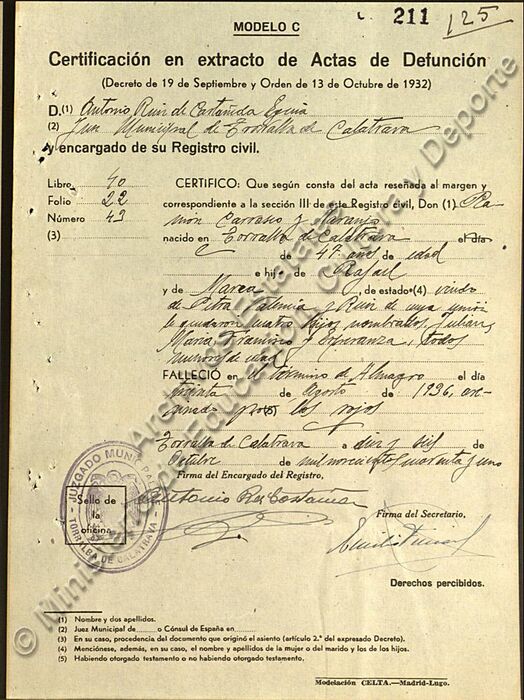 MODELO C
211
125
Certificación en extracto de Actas de Defunción
(Decreto de 19 de Septiembre y Orden de 13 de Octubre de 1932)
D.(1) Antonio Ruiz de Castañeda
(2) Juez Municipal de Torralba de Calatrava
y encargado de su Registro civil.
Libro 40
Folio 22
Número 43
(3)
CERTIFICO: Que según consta del acta reseñada al margen y
correspondiente a la sección III de este Registro civil, Don (1) Ra
mon Carrasco y Naranjo
nacido en Torralba de Calatrava el día
de 47 años de edad
e hijo de Rafael
y de Maria, de estado (4) viudo
de Petra Valencia y Ruiz de cuya unión
le quedaron cuatro hijos nombrados, Julian,
Maria, y Esperanza, todos
menores de edad
FALLECIÓ en el término de Almagro el día
treinta de Agosto de 1936, ase-
sinado por (5) los rojos
Torralba de Calatrava a diez y seis de
Octubre de mil novecientos cuarenta y uno
Firma del Encargado del Registro,
Antonio Ruiz Castañeda
JUZGADO MUNICIPAL
TORRALBA DE CALATRAVA
Sello de
la
oficina
Firma del Secretario,
Derechos percibidos.
(1) Nombre y dos apellidos.
(2) Juez Municipal de ... o Cónsul de España en ...
(3) En su caso, procedencia del documento que originó el asiento (artículo 2.º del expresado Decreto).
(4) Menciónese, además, en su caso, el nombre y apellidos de la mujer o del marido y los de los hijos.
(5) Habiendo otorgado testamento o no habiendo otorgado testamento.
Modelación CELTA.—Madrid-Lugo.
© Ministerio de Educación, Cultura y Deporte